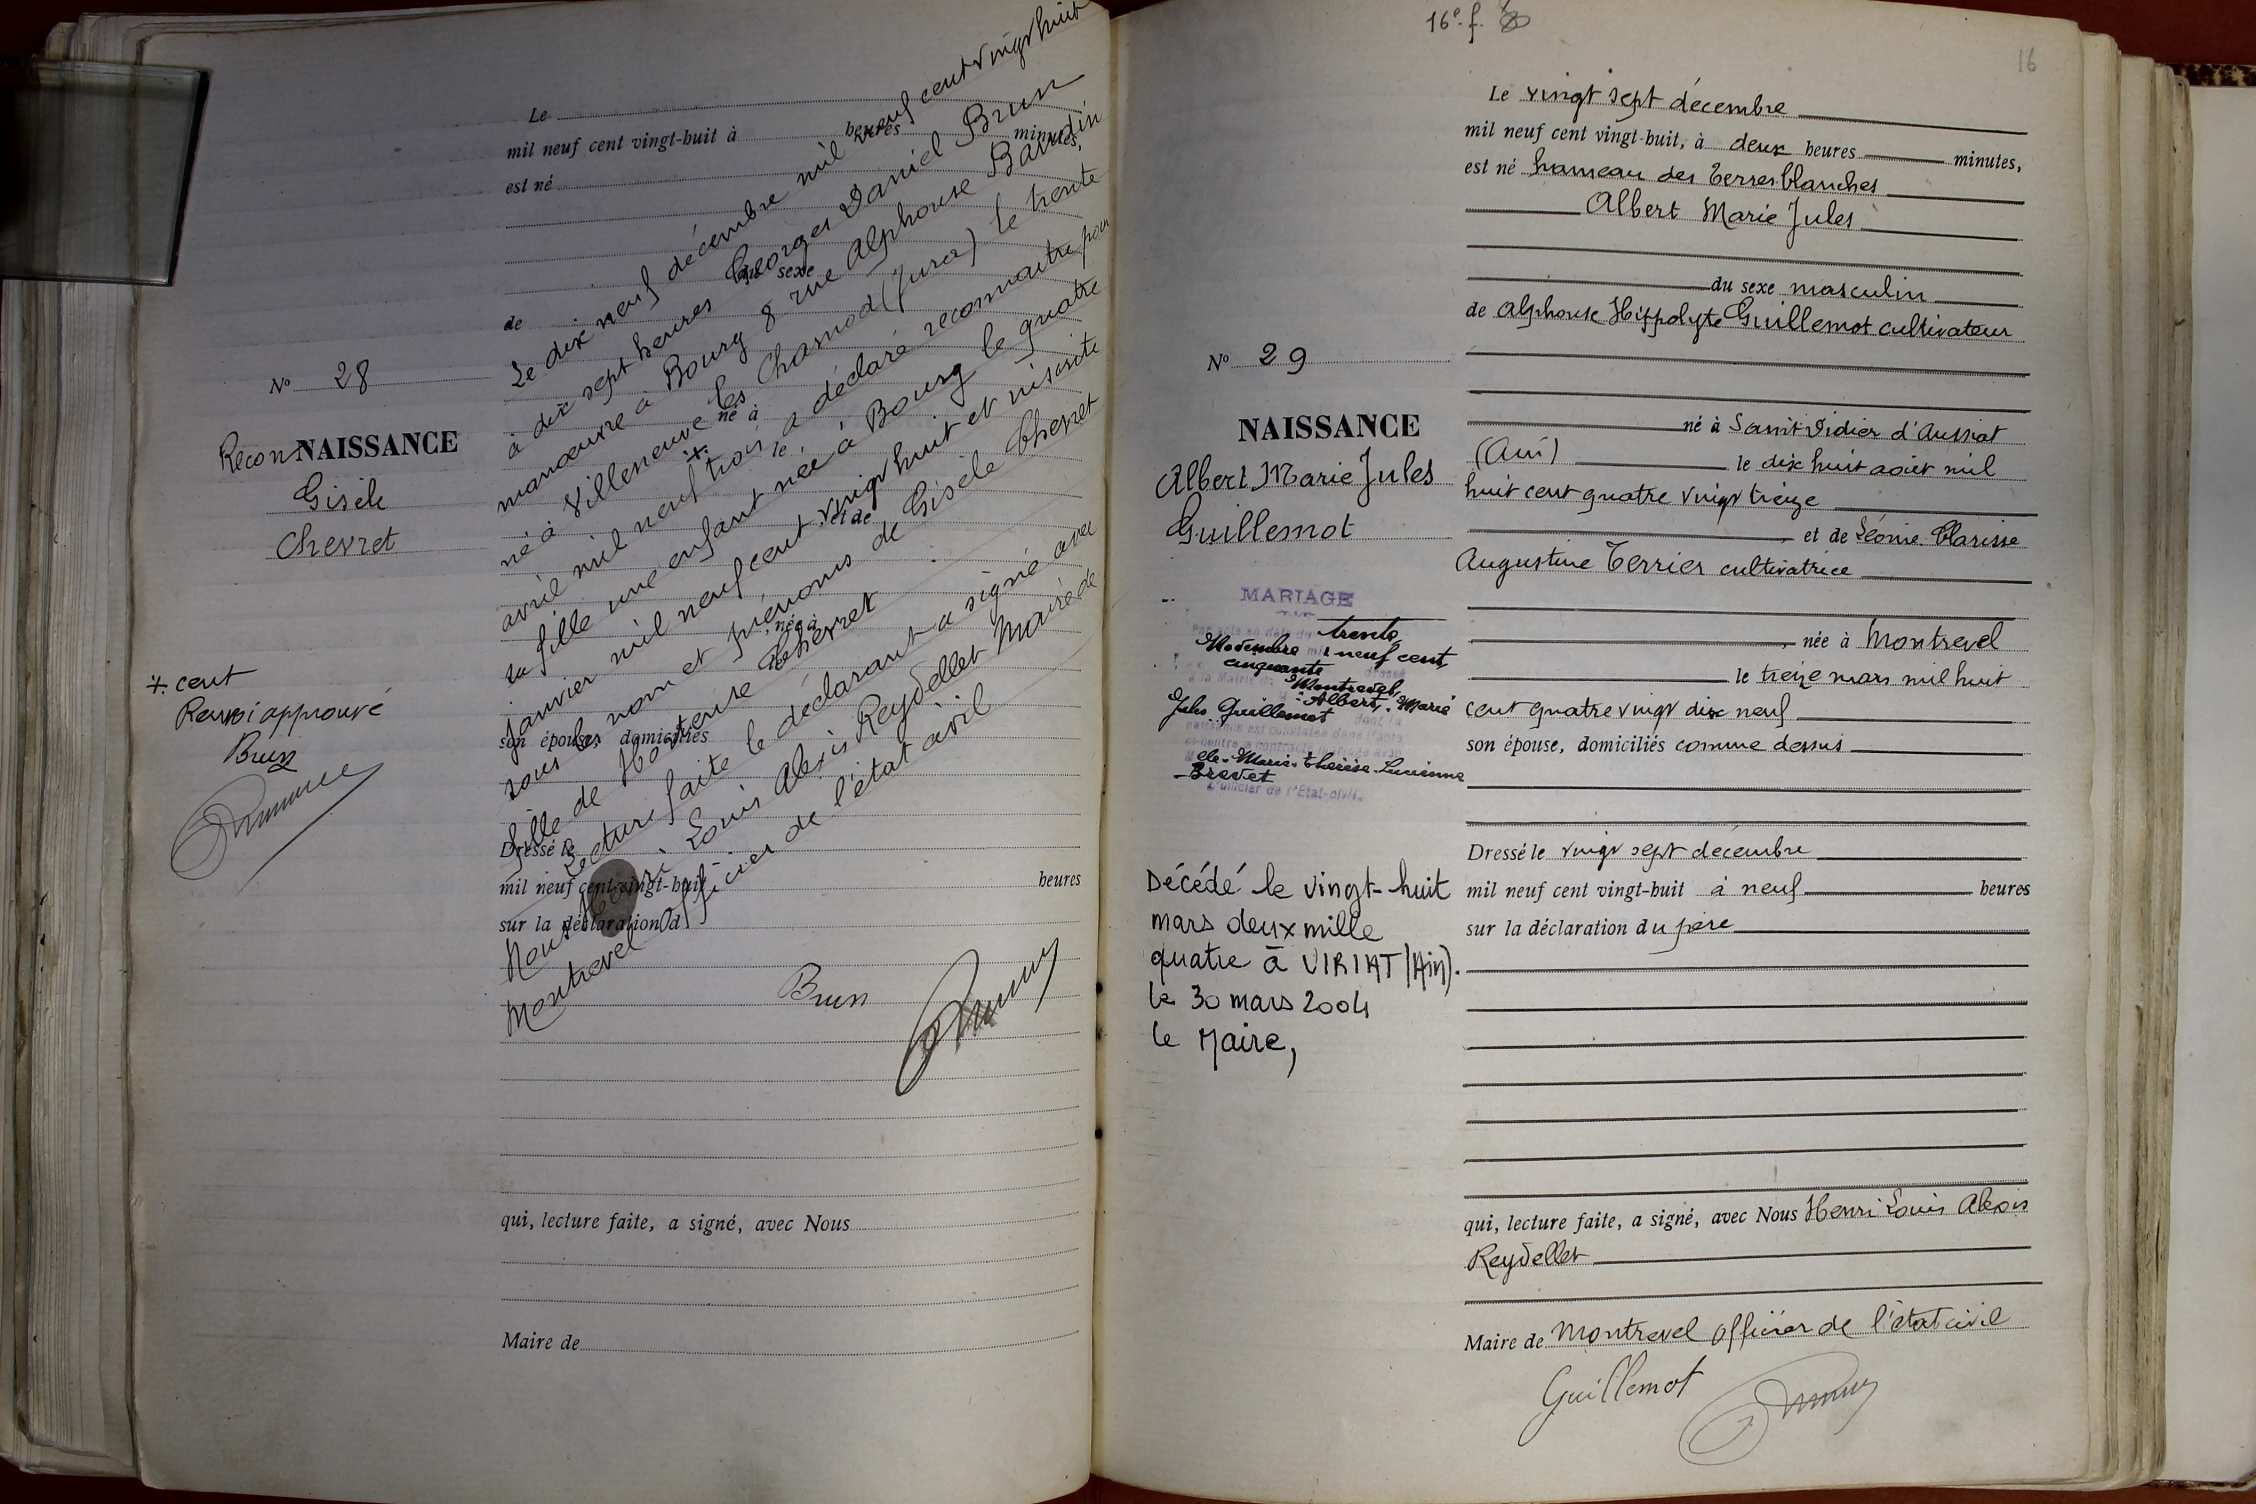 Le
mil neuf cent vingt-huit à heures minutes,
est né
du sexe
de
né à
le
et de
née à
son épouse, domiciliés
Dressé le
mil neuf cent vingt-huit heures
sur la déclaration d
Le dix neuf décembre mil neuf cent vingt huit
à dix sept heures Georges Daniel Brun
manœuvre à Bourg 8 rue Alphonse Baudin
né à Villeneuve les Charnod (Jura) le trente
avril mil neuf trois a déclaré reconnaitre pour
sa fille une enfant née à Bourg le quatre
janvier mil neuf cent vingt huit et inscrite
sous les nom et prénoms de Gisèle Chevret
fille de Hortense Chevret
Lecture faite le déclarant a signé avec
Nous Henri Louis Alexis Reydellet Maire de
Montrevel officier de l'état civil
Brun
qui, lecture faite, a signé, avec Nous
Maire de
N° 28
Recon NAISSANCE
Gisèle
Chevret
+ cent
Renvoi approuvé
Brun
16e. f.
16
N° 29
NAISSANCE
Albert Marie Jules
Guillemot
MARIAGE
trente
Novembre mil neuf cent
cinquante
à la Mairie de Montrevel
Albert, Marie
Jules Guillemot
dont la
Marie-thérèse-Lucienne
Brevet
L'officier de l'Etat-civil.
Décédé le vingt-huit
mars deux mille
quatre à VIRIAT (Ain).
le 30 mars 2004
le Maire,
Le vingt sept décembre
mil neuf cent vingt-huit, à deux heures minutes,
est né hameau des Terres blanches
Albert Marie Jules
du sexe masculin
de Alphonse Hippolyte Guillemot cultivateur
né à Saint Didier d'Aussiat
(Ain) le dix huit août mil
huit cent quatre vingt treize
et de Léonie Clarisse
Augustine Terrier cultivatrice
née à Montrevel
le treize mars mil huit
cent quatre vingt dix neuf
son épouse, domiciliés comme dessus
Dressé le vingt sept décembre
mil neuf cent vingt-huit à neuf heures
sur la déclaration du père
qui, lecture faite, a signé, avec Nous Henri Louis Alexis
Reydellet
Maire de Montrevel officier de l'état civil
Guillemot